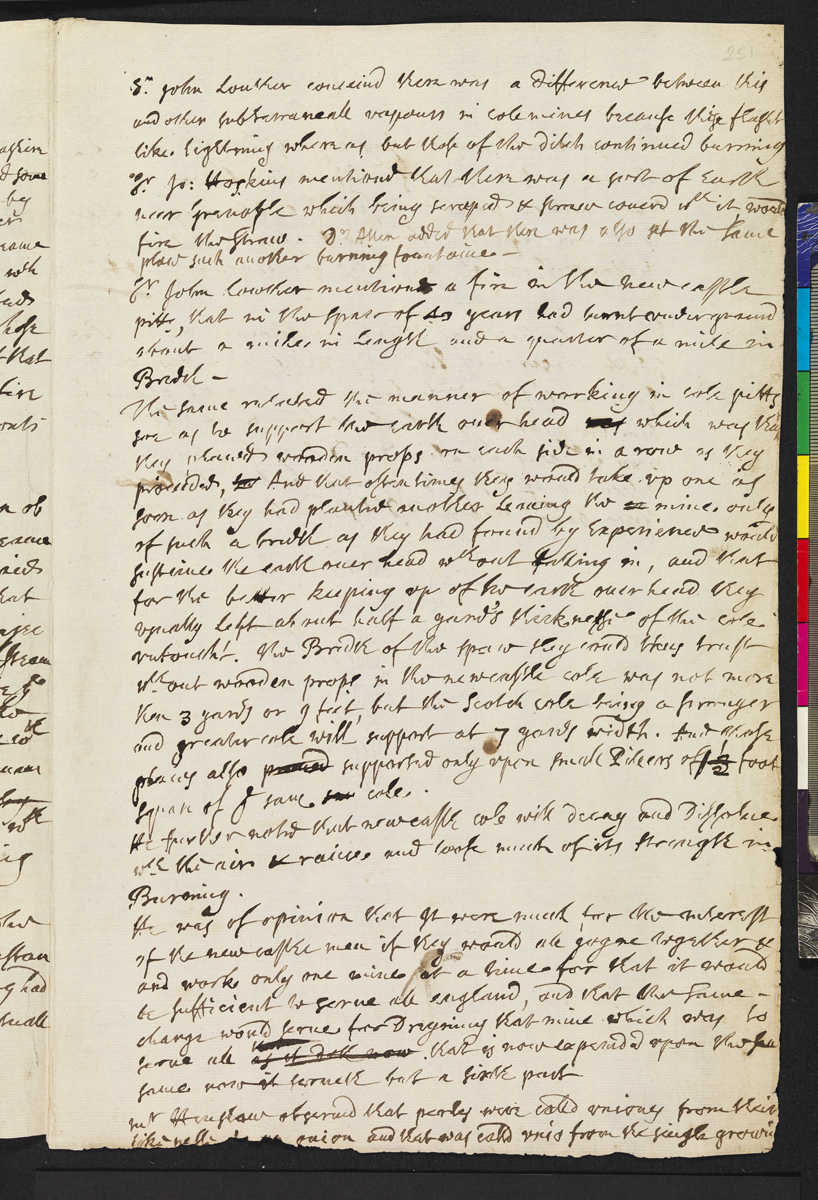 251
Sr. John Lowther conceiud there was a difference between this
and other subterraneall vapours in colemines because these flasht
like lightning whereas but those of the ditch continued burning
Sr Jo: Hoskins mentiond that there was a sort of Earth
neer Grenoble which being scraped & strawe couerd wth it would
fire the straw. Dr. Allen added that there was also at the same
place such another burning fountaine -
Sr. John Lowther mentiond a fire in the newcastle
pitts, that in the space of 40 years had burnt underground
about a mile in Length and a quarter of a mile in
Bredth -
The same related the manner of working in cole pitts
soe as to support the earth ouer head which was that
they placed wooden props on each side in a row as they
proceeded, And that oftentimes they would take up one as
soon as they had planted another Leauing the mine only
of such a bredth as they had found by Experience would
susteine the earth ouer head wthout falling in, and that
for the better keeping up of the earth ouer head they
usually left about half a yard's thickness of the cole
untoucht. The Bredth of the space they could thus trust
wthout wooden props in the newcastle cole was not more
then 3 yards or 9 feet, but the Scotch cole being a stronger
and greater cole will support at 7 yards width. And those
places also supported only upon small Pileers of foot
square of ye same cole.
He further noted that newcastle cole will decay and Dissolue
wth the air & raine and loose much of its strength in
Burning.
He was of opinion that it were much for the interest
of the newcastle men if they would all joyne together &
and work only one mine at a time for that it would
be sufficient to serue all england, and that the same -
charge would serue for Dreyning that mine which was to
serue all that is now expended upon the
same now it serueth but a sixth part
mr Henshaw obserued that perles were cald uniones from their
like an onion and that was cald unio from the single growing